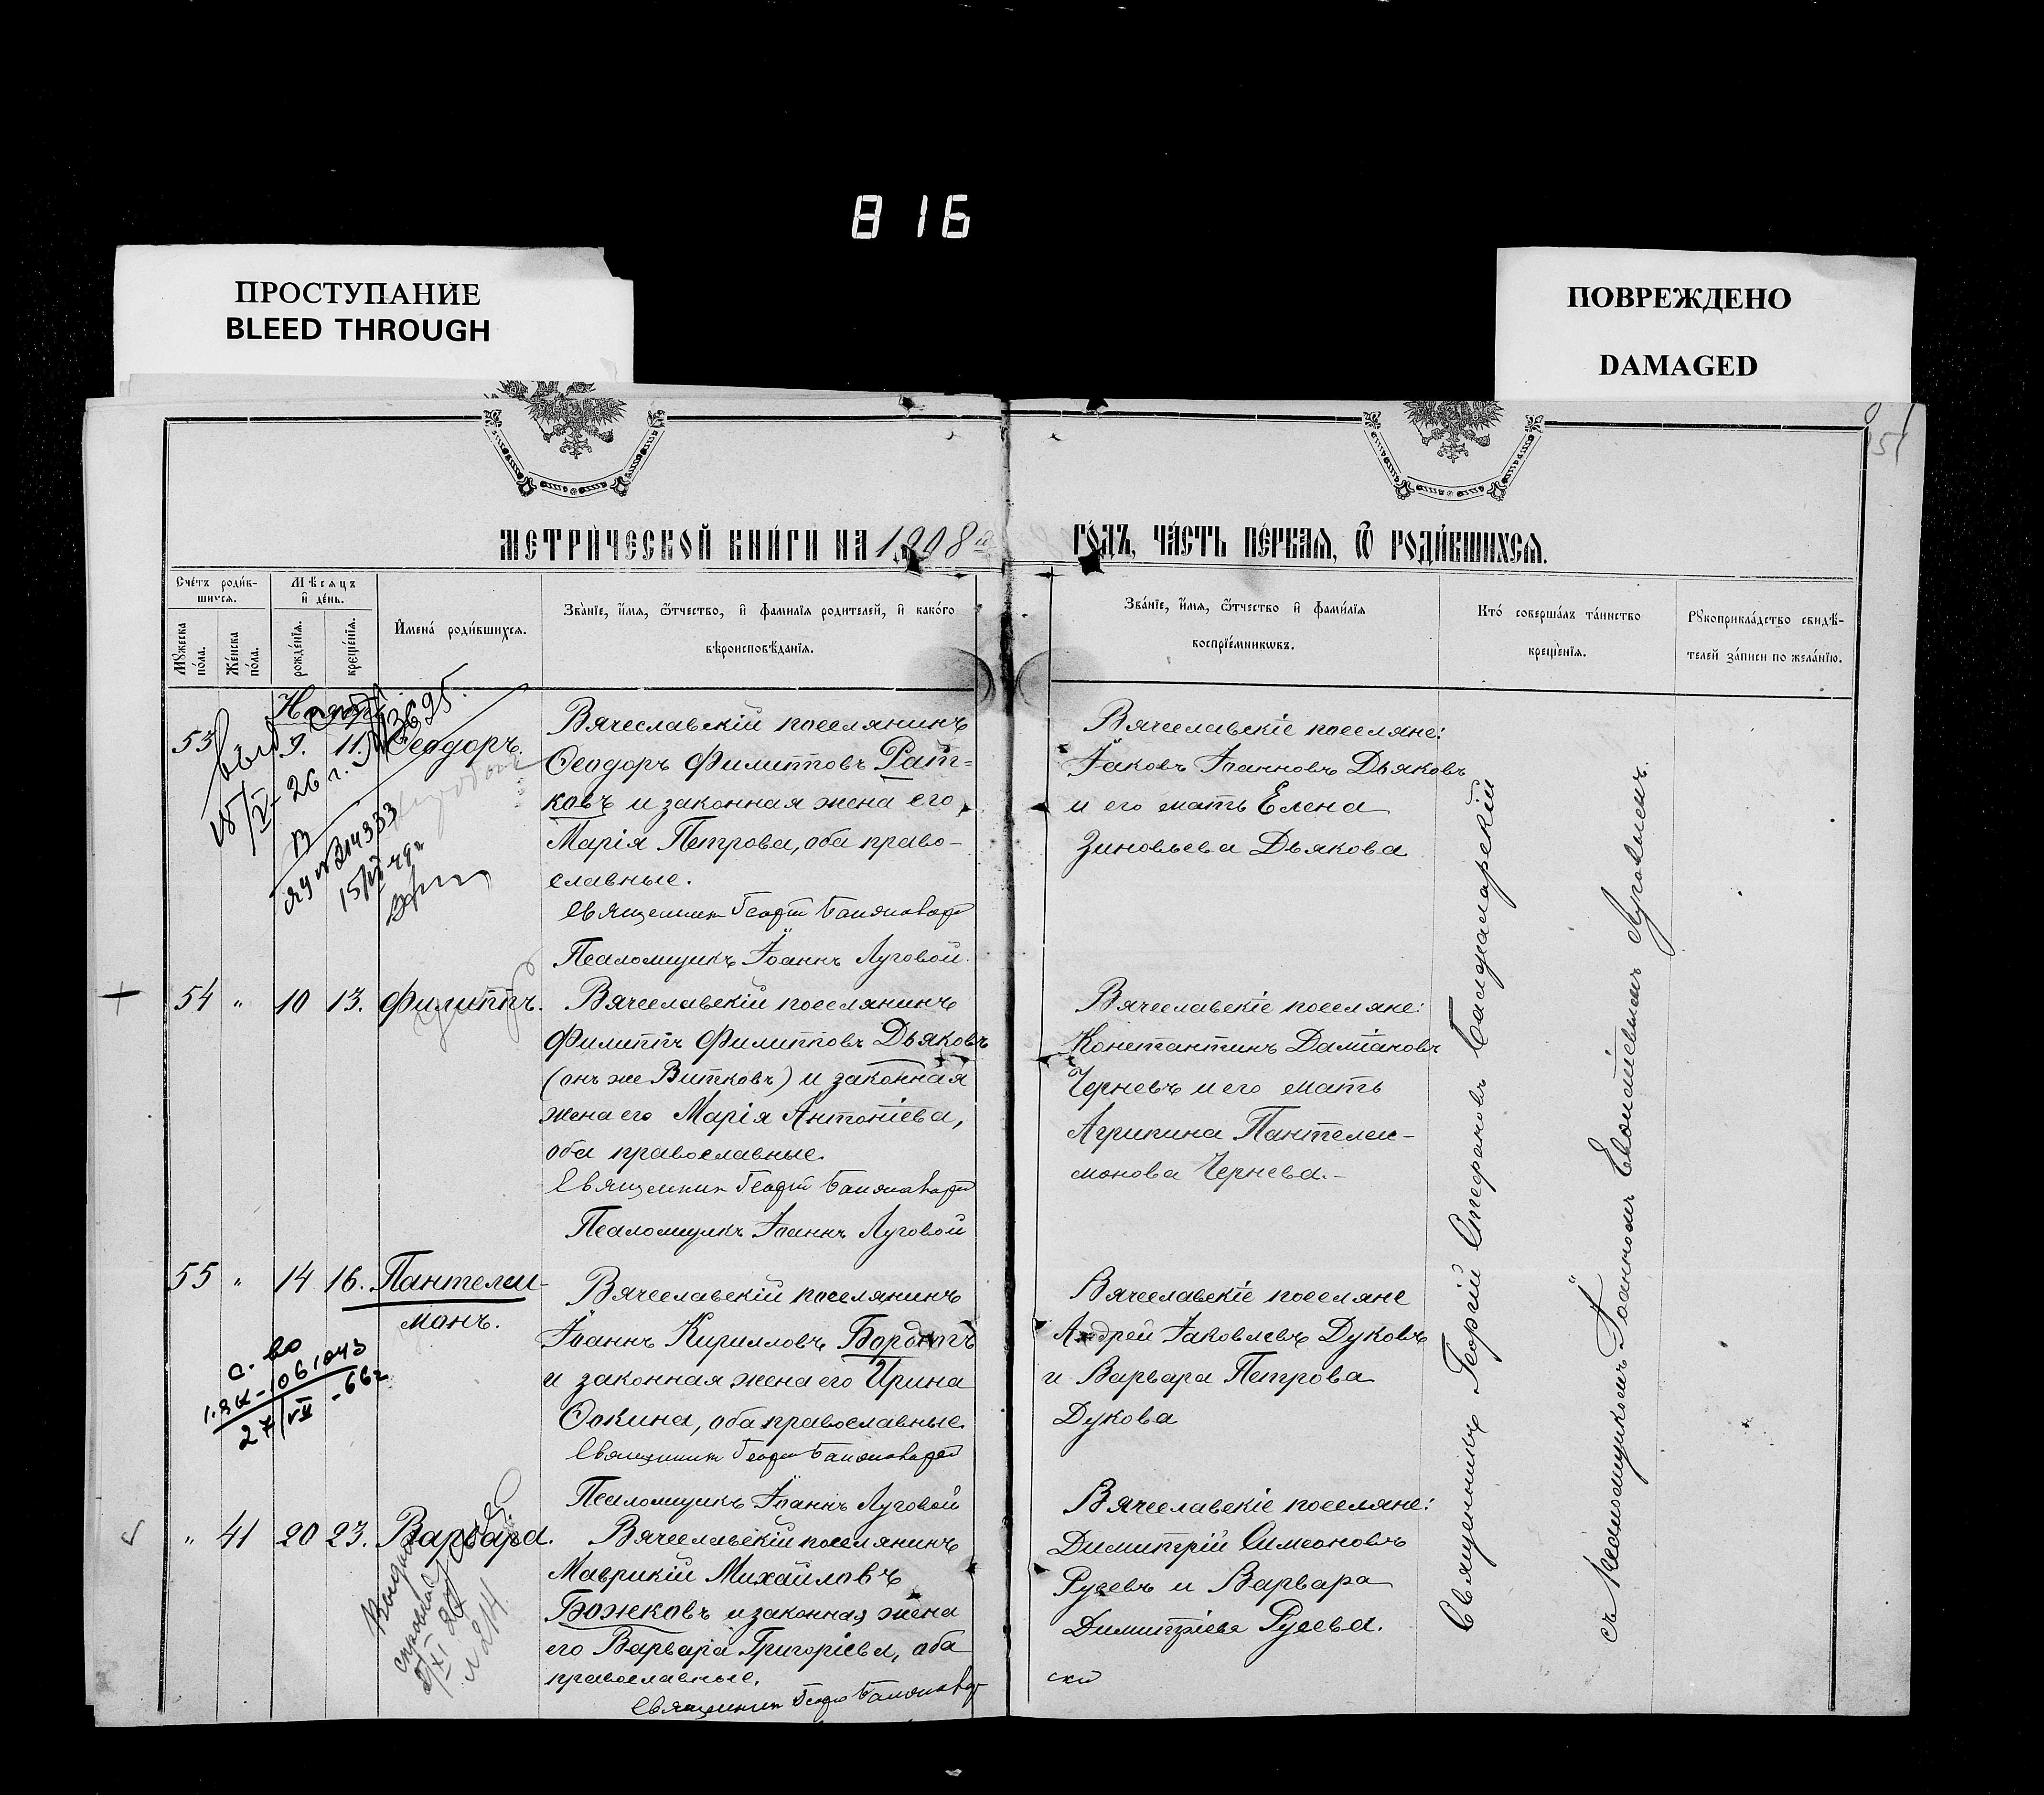 816
ПРОСТУПАНИЕ
BLEED THROUGH
ПОВРЕЖДЕНО
DAMAGED
51
МЕТРИЧЕСКОЙ КНИГИ НА 1908й
ГОДЪ, ЧАСТЬ ПЕРВАЯ, Ѿ РОДИВШИХСЯ.
Счетъ родив-
шихся.
Мужеска
пола.
Женска
пола.
Мѣсяцъ
и день.
рожденія.
крещенія.
Имена родившихся.
Званіе, имя, ѿтчество, и фамилія родителей, и какого
вѣроисповѣданія.
Званіе, имя, ѿтчество и фамилія
воспріемниковъ.
Кто совершалъ таинство
крещенія.
Рукоприкладство свидѣ-
телей записи по желанію.
Ноябрь
53 9. 11. Ѳеодоръ.
Вячеславскій поселянинъ
Ѳеодоръ Филипповъ Рат-
ковъ и законная жена его
Марія Петрова, оба право-
славные.
Священник Георгій
Псаломщикъ Іоаннъ Луговой.
Вячеславскіе поселяне:
Іаковъ Іоанновъ Дьяковъ
и его мать Елена
Зиновьева Дьякова
13695.
18/V - 26 г.
№ 314333
54 " 10 13. Филиппъ.
Вячеславскій поселянинъ
Филиппъ Филипповъ Дьяковъ
(онъ же Витковъ) и законная
жена его Марія Антоніева,
оба православные.
Священник Георгій
Псаломщикъ Іоаннъ Луговой
Вячеславскіе поселяне:
Константинъ Даміановъ
Черневъ и его мать
Агрипина Пантелеи-
монова Чернева.-
55 " 14 16. Пантелеи-
монъ.
Вячеславскій поселянинъ
Іоаннъ Кирилловъ
и законная жена его Ирина
Ѳокина, оба православные.
Священник Георгій
Псаломщикъ Іоаннъ Луговой
Вячеславскіе поселяне
Андрей Іаковлевъ Дуковъ
и Варвара Петрова
Дукова
с-во
1061043
27/VII -66г
" 41 20 23. Варвара.
Вячеславскій поселянинъ
Маврикій Михайловъ
Божковъ и законная жена
его Варвара Григоріева, оба
православные.
Священник Георгій
Вячеславскіе поселяне:
Димитрій Симеоновъ
Русевъ и Варвара
Димитріева Русева.
ский
№ 214.
Священникъ Георгій Стефановъ
съ псаломщикомъ Іоанномъ Луговымъ.